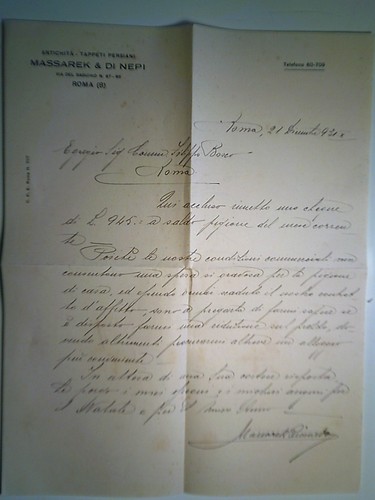 ANTICHITÀ - TAPPETI PERSIANI
MASSAREK & DI NEPI
VIA DEL BABUINO N. 87-88
ROMA (8)
Telefono 60-709
Roma, 21 Dicembre 931
Egregio Sig. Comm. Bosco
Roma
Qui accluso rimetto uno chèque
di £ 945.= a saldo pigione del mese corren
te
Poichè le nostre condizioni commerciali non
una spesa si gravosa per la pigione
di casa, ed essendo ormai scaduto il nostro contrat
to d'affitto, sono a pregarla di farmi sapere se
è disposto farmi una riduzione sul prezzo, do
vendo altrimenti procurarmi altrove un alloggio
più conveniente.
In attesa di una Sua cortese risposta
Le porgo i miei ossequi e i migliori auguri per
il Natale e per il Anno
Massarek